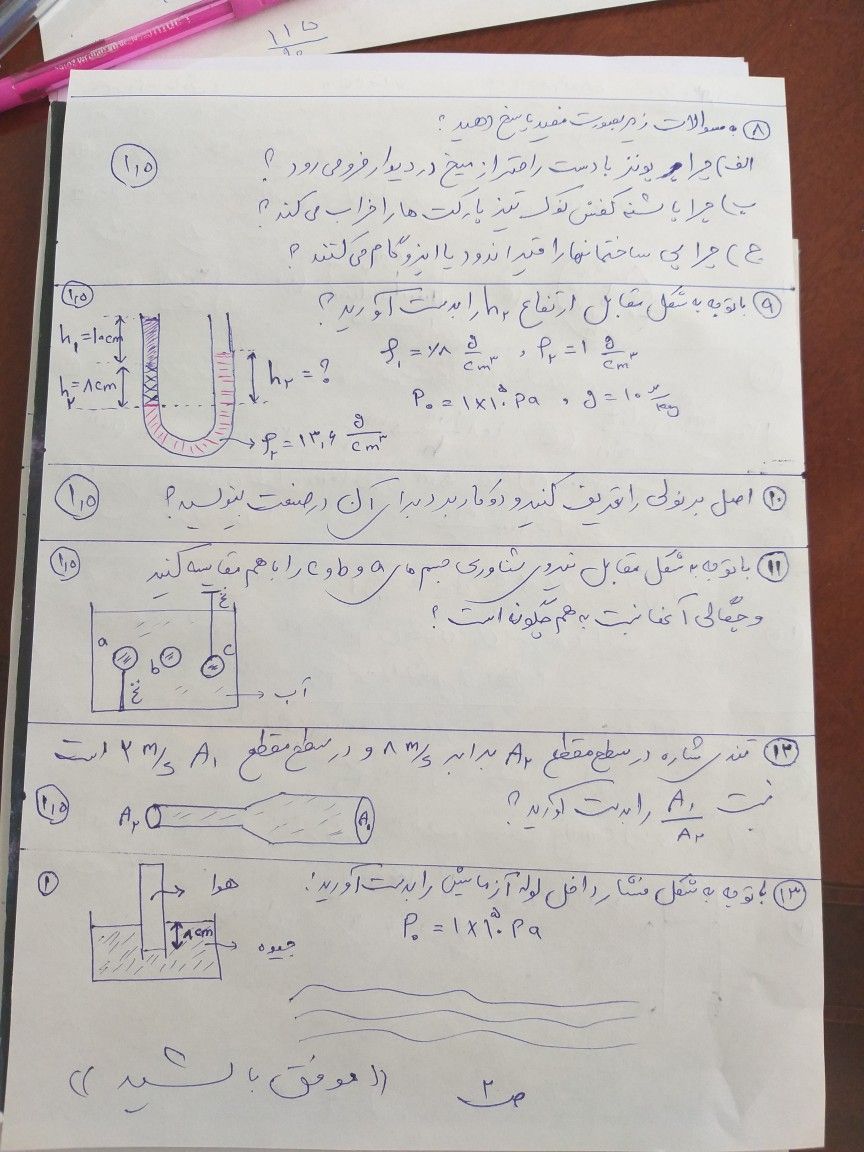 ۱۱۵
۹۰
۸) به سوالات زیر بصورت مفید پاسخ دهید؟
۱,۵
الف) چرا پونز با دست راحتر از میخ در دیوار فرو می رود ؟
ب) چرا پاشنه کفش نوک تیز پارکت ها را خراب می کند ؟
ج) چرا پی ساختمانها را قیر اندود یا ایزوگام می کنند ؟
۹) باتوجه به شکل مقابل ارتفاع h۳ را بدست آورید ؟
۱,۵
h₁=۱۰cm
h₂=۸cm
h۳ = ?
ρ₁ = ۰/۸ g/cm³ , ρ₂ = ۱ g/cm³
P₀ = ۱×۱۰⁵ Pa , g = ۱۰ N/kg
ρ۳ = ۱۳,۶ g/cm³
۱۰) اصل برنولی را تعریف کنید و دو کاربرد برای آن در صنعت بنویسید؟
۱,۵
۱۱) باتوجه به شکل مقابل نیروی شناوری جسم های a و b و c را با هم مقایسه کنید
۱,۵
و چگالی آنها نسبت به هم چگونه است ؟
a
b
c
نخ
نخ
آب
۱۲) تندی شاره در سطح مقطع A₂ برابر ۸ m/s و در سطح مقطع A₁ ۲ m/s است
نسبت A₁/A₂ را بدست آورید ؟
۱,۵
A₂
A₁
۱۳) باتوجه به شکل فشار داخل لوله آزمایش را بدست آورید؟
۱
هوا
۸cm
جیوه
P₀ = ۱×۱۰⁵ Pa
((موفق باشید))
ص ۲